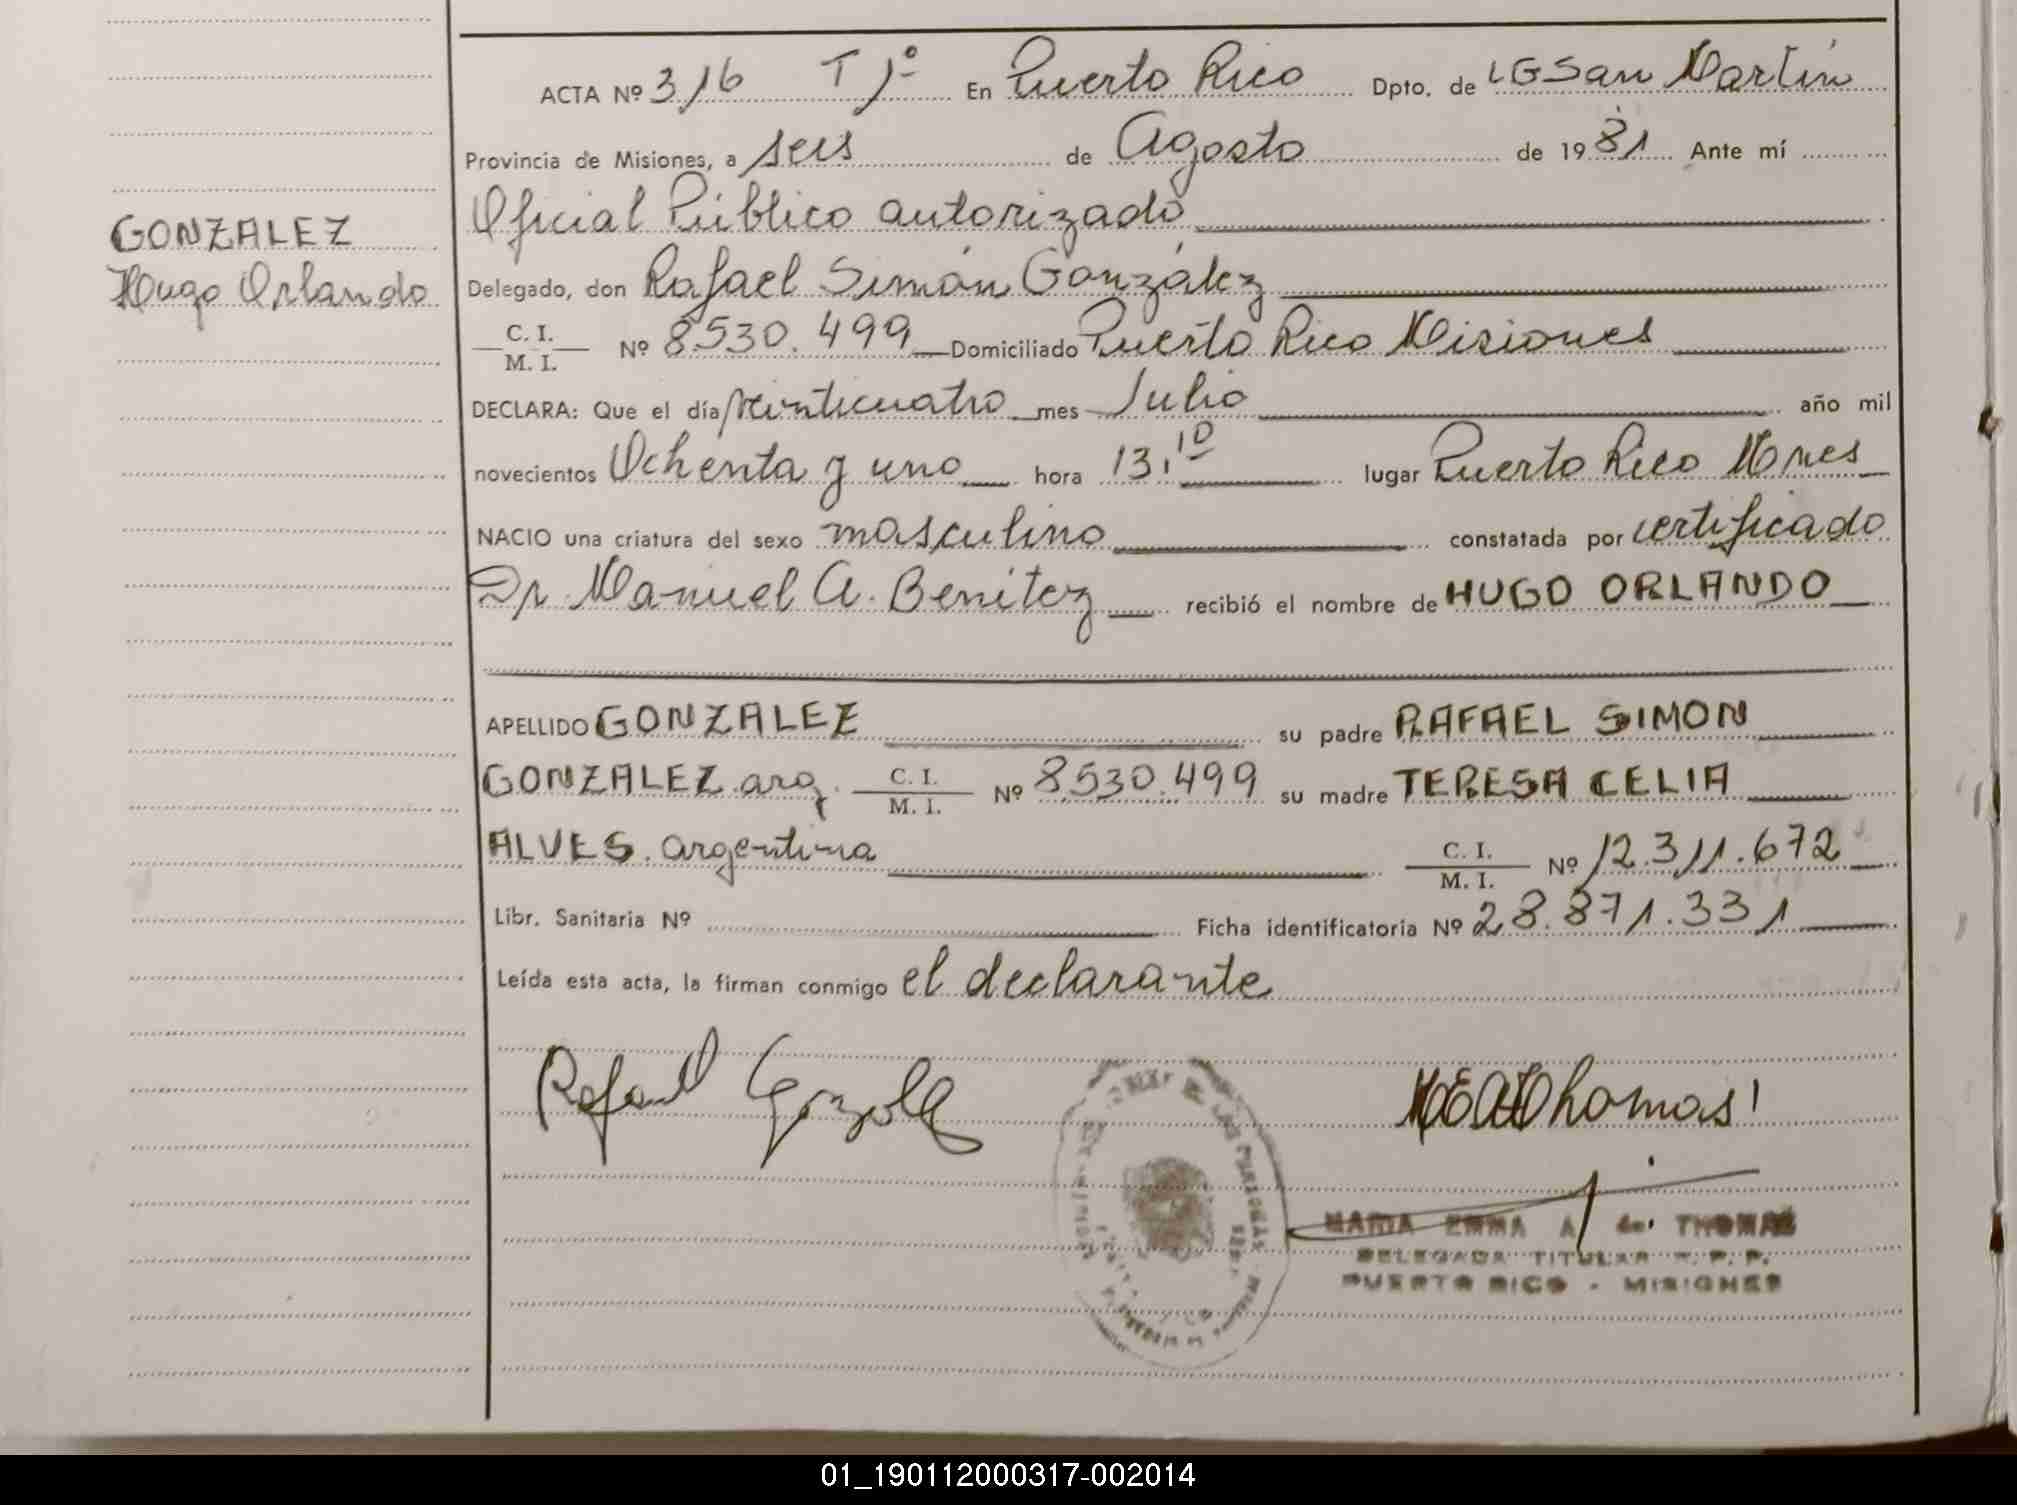 ACTA Nº 316 T 1º En Puerto Rico Dpto. de LGSan Martín
Provincia de Misiones, a seis de Agosto de 1981 Ante mí
Oficial Público autorizado
GONZALEZ
Hugo Orlando
Delegado, don Rafael Simón González
C. I.
M. I. Nº 8.530.499 Domiciliado Puerto Rico Misiones
DECLARA: Que el día veinticuatro mes Julio año mil
novecientos Ochenta y uno hora 13.10 lugar Puerto Rico Mnes
NACIO una criatura del sexo masculino constatada por certificado
Dr. Manuel A. Benítez recibió el nombre de HUGO ORLANDO
APELLIDO GONZALEZ su padre RAFAEL SIMON
GONZALEZ arg. C. I. M. I. Nº 8.530.499 su madre TERESA CELIA
ALVES. argentina C. I. M. I. Nº 12.311.672
Libr. Sanitaria Nº Ficha identificatoria Nº 28.871.331
Leída esta acta, la firman conmigo el declarante
Rafael Gonzalez
MEAdThomas
MARIA EMMA A de THOMAS
DELEGADA TITULAR R. P. P.
PUERTO RICO - MISIONES
01_190112000317-002014